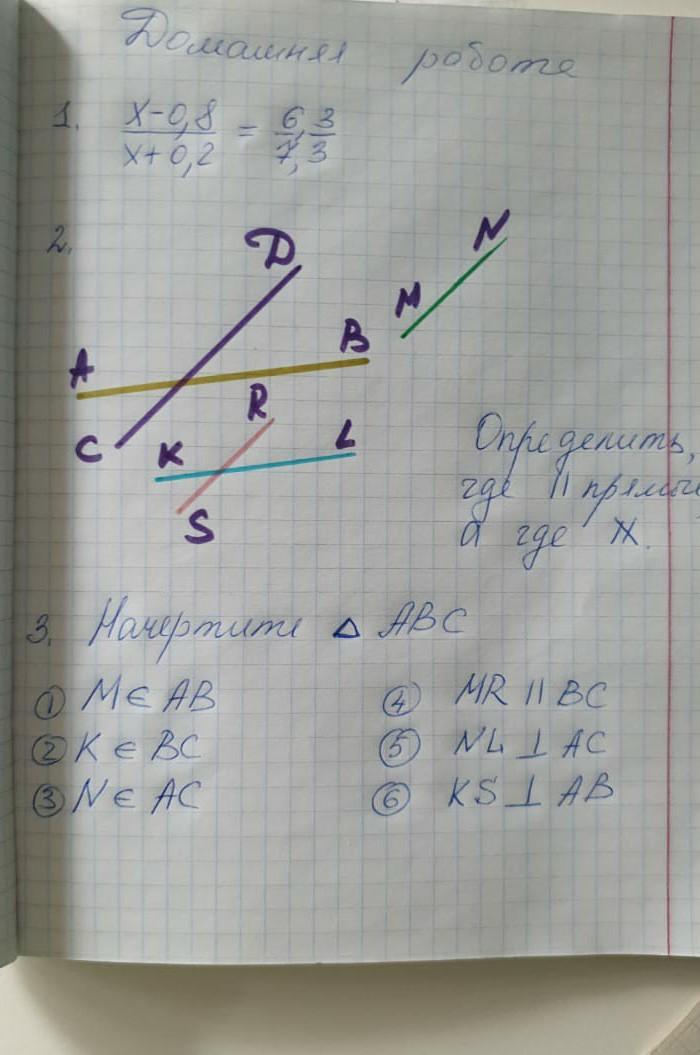 Домашняя работа
1. x-0,8 / x+0,2 = 6,3 / 7,3
2.
D
N
M
A
B
R
C
K
L
S
Определить,
где || прямые
а где ∦.
3. Начертите △ ABC
① M ∈ AB
② K ∈ BC
③ N ∈ AC
④ MR || BC
⑤ NL ⊥ AC
⑥ KS ⊥ AB